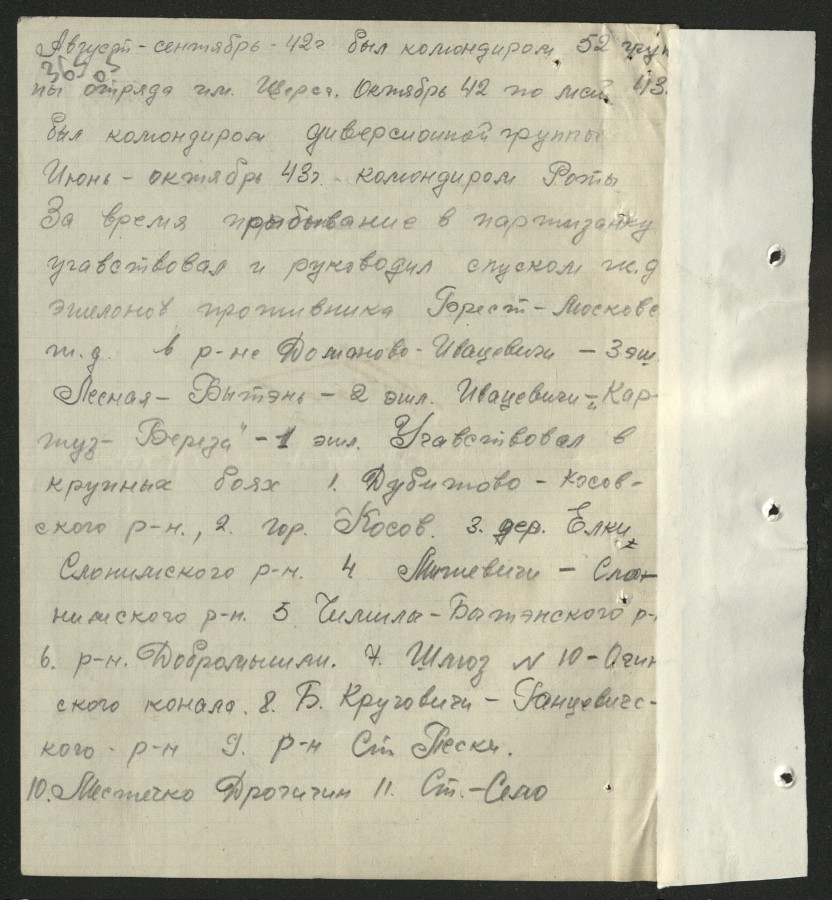 Август - сентябрь - 42г был комондиром 52 груп
пы отряда им. Щерса. Октябрь 42 по май 43.
был комондиром диверсионной группы
Июнь - октябрь 43г. комондиром Роты
За время прыбывание в партизанку
учавствовал и руководил спуском ж.д
эшелонов противника Брест - Московс
ж.д. в р-не Доманово - Ивацевичи - 3 эш.
Лесная - Бытэнь - 2 эшл. Ивацевичи - "Кар-
туз - Береза" - 1 эшл. Учавствовал в
крупных боях 1. Дубитово - Косов-
ского р-н., 2. гор. Косов. 3. дер. Елки
Слонимского р-н. 4 Мижевичи - Сло-
нимского р-н. 5 Чимилы - Батэнского р-
6. р-н. Добромышли. 7. Шлюз N 10 - Огин
ского конала. 8. Б. Круговичи - Ганцевичс-
кого - р-н 9. р-н Ст Пески.
10. Местечко Дрогичин 11. Ст. - Село